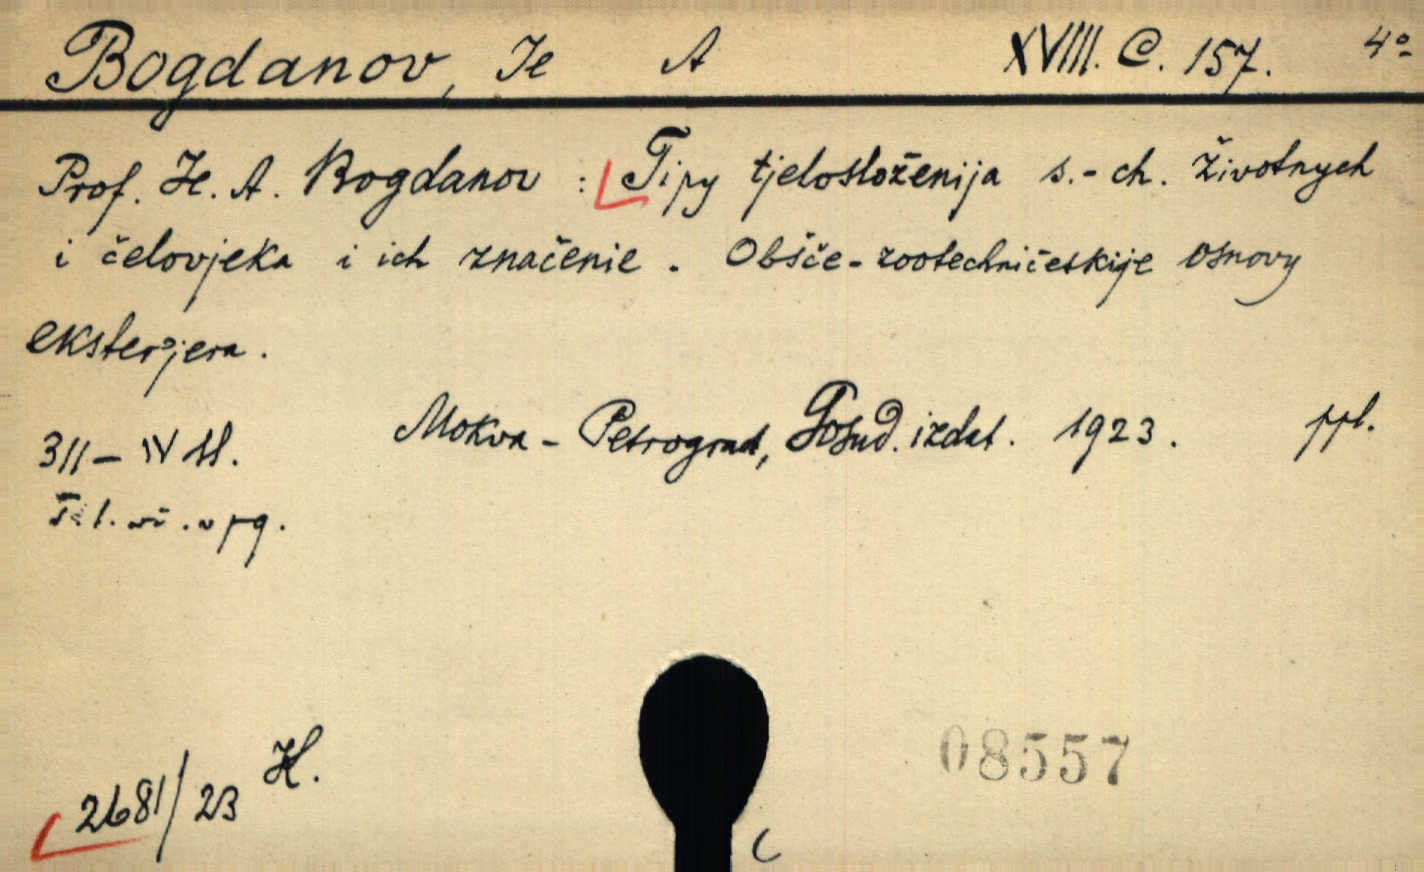 Bogdanov, Je A XVIII. C. 157. 4°
Prof. H. A. Bogdanov : Tipy tjelosloženija s.-ch. životnych
i čelovjeka i ich značenie. Obšče-zootechničeskije osnovy
eksterjera.
311 – IV Mokva - Petrograd, Gosud. izdat. 1923. ppl.
2681/23 H.
08557
C